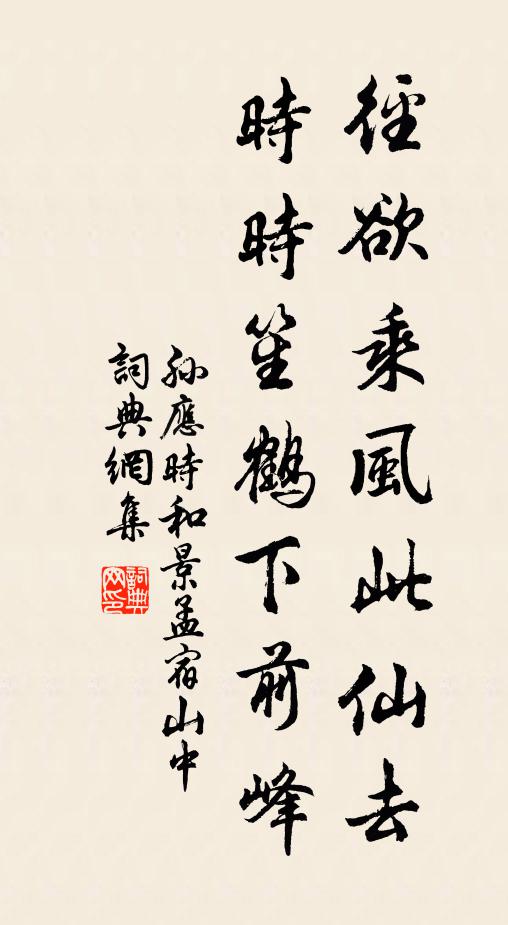 徑欲乘風此仙去
時時笙鶴下前峰
孫應時和景孟宿山中
詞典網集
詞典網印